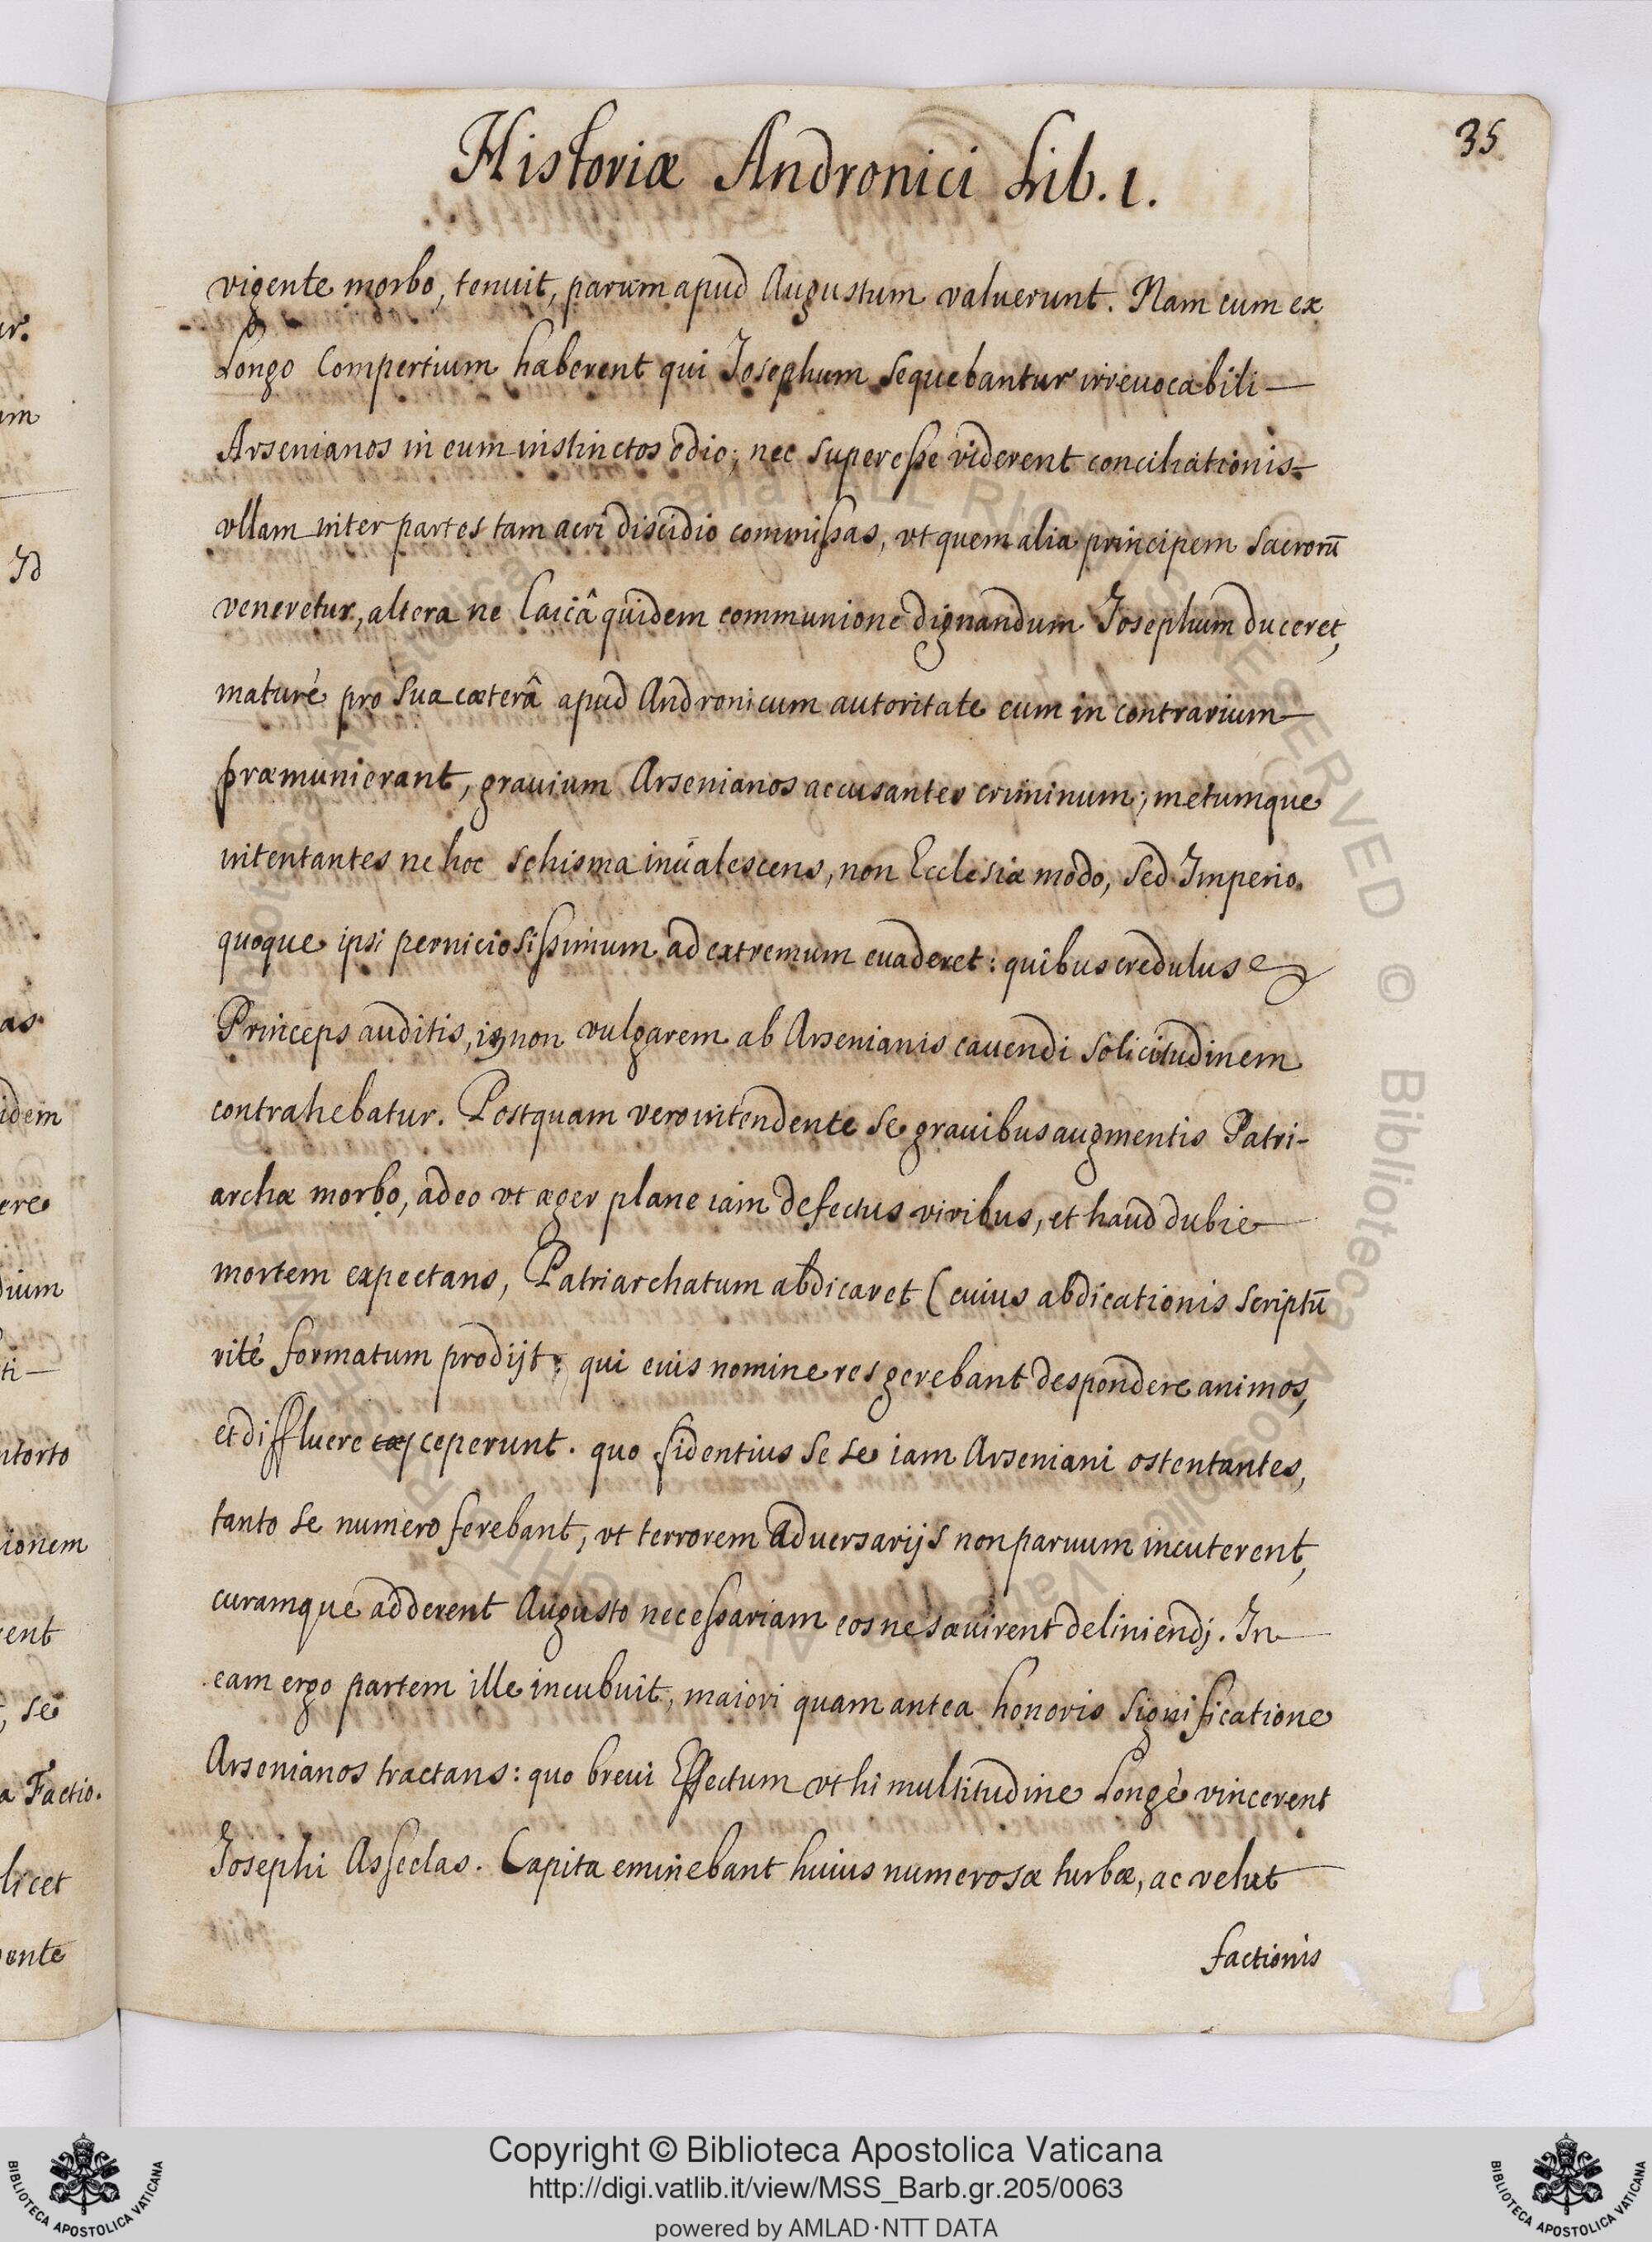 35
Historiæ Andronici Lib. 1.
vigente morbo, tenuit, parum apud Augustum valuerunt. Nam cum ex
Longo Compertium haberent qui Josephum sequebantur irreuocabili —
Arsenianos in eum instinctos odio; nec superesse viderent conciliationis —
vllam inter partes tam acri discidio commissas, vt quem alia principem sacrorū
veneretur, altera ne laicâ quidem communione dignandum Josephum duceret,
maturè pro sua cæterâ apud Andronicum autoritate eum in contrarium —
præmunierant, grauium Arsenianos accusantes criminum; metumque
intentantes ne hoc schisma inualescens, non Ecclesiæ modo, sed Imperio
quoque ipsi perniciosissimum ad extremum euaderet: quibus credulus
Princeps auditis, in non vulgarem ab Arsenianis cauendi solicitudinem
contrahebatur. Postquam vero intendente se grauibus augmentis Patri-
archæ morbo, adeo vt æger plane iam defectus viribus, et haud dubie —
mortem expectans, Patriarchatum abdicaret (cuius abdicationis scriptū
ritè formatum prodijt; qui euis nomine res gerebant despondere animos,
et diffluere cæ ceperunt. quo fidentius se se iam Arseniani ostentantes,
tanto se numero ferebant, vt terrorem adversarijs non paruum incuterent,
curamque adderent Augusto necessariam eos ne sævirent deliniendj. In —
eam ergo partem ille incubuit, maiori quam antea honoris significatione
Arsenianos tractans: quo breui Effectum vt hi multitudine Longè vincerent
Josephi Asseclas. Capita eminebant huius numerosæ turbæ, ac velut —
factionis
ur.
um
Jd
as.
idem
ere
dium
ti —
ntorto
ionem
rent
, se
a Factio.
licet
uente
Copyright © Biblioteca Apostolica Vaticana
http://digi.vatlib.it/view/MSS_Barb.gr.205/0063
powered by AMLAD·NTT DATA
BIBLIOTECA APOSTOLICA VATICANA
BIBLIOTECA APOSTOLICA VATICANA